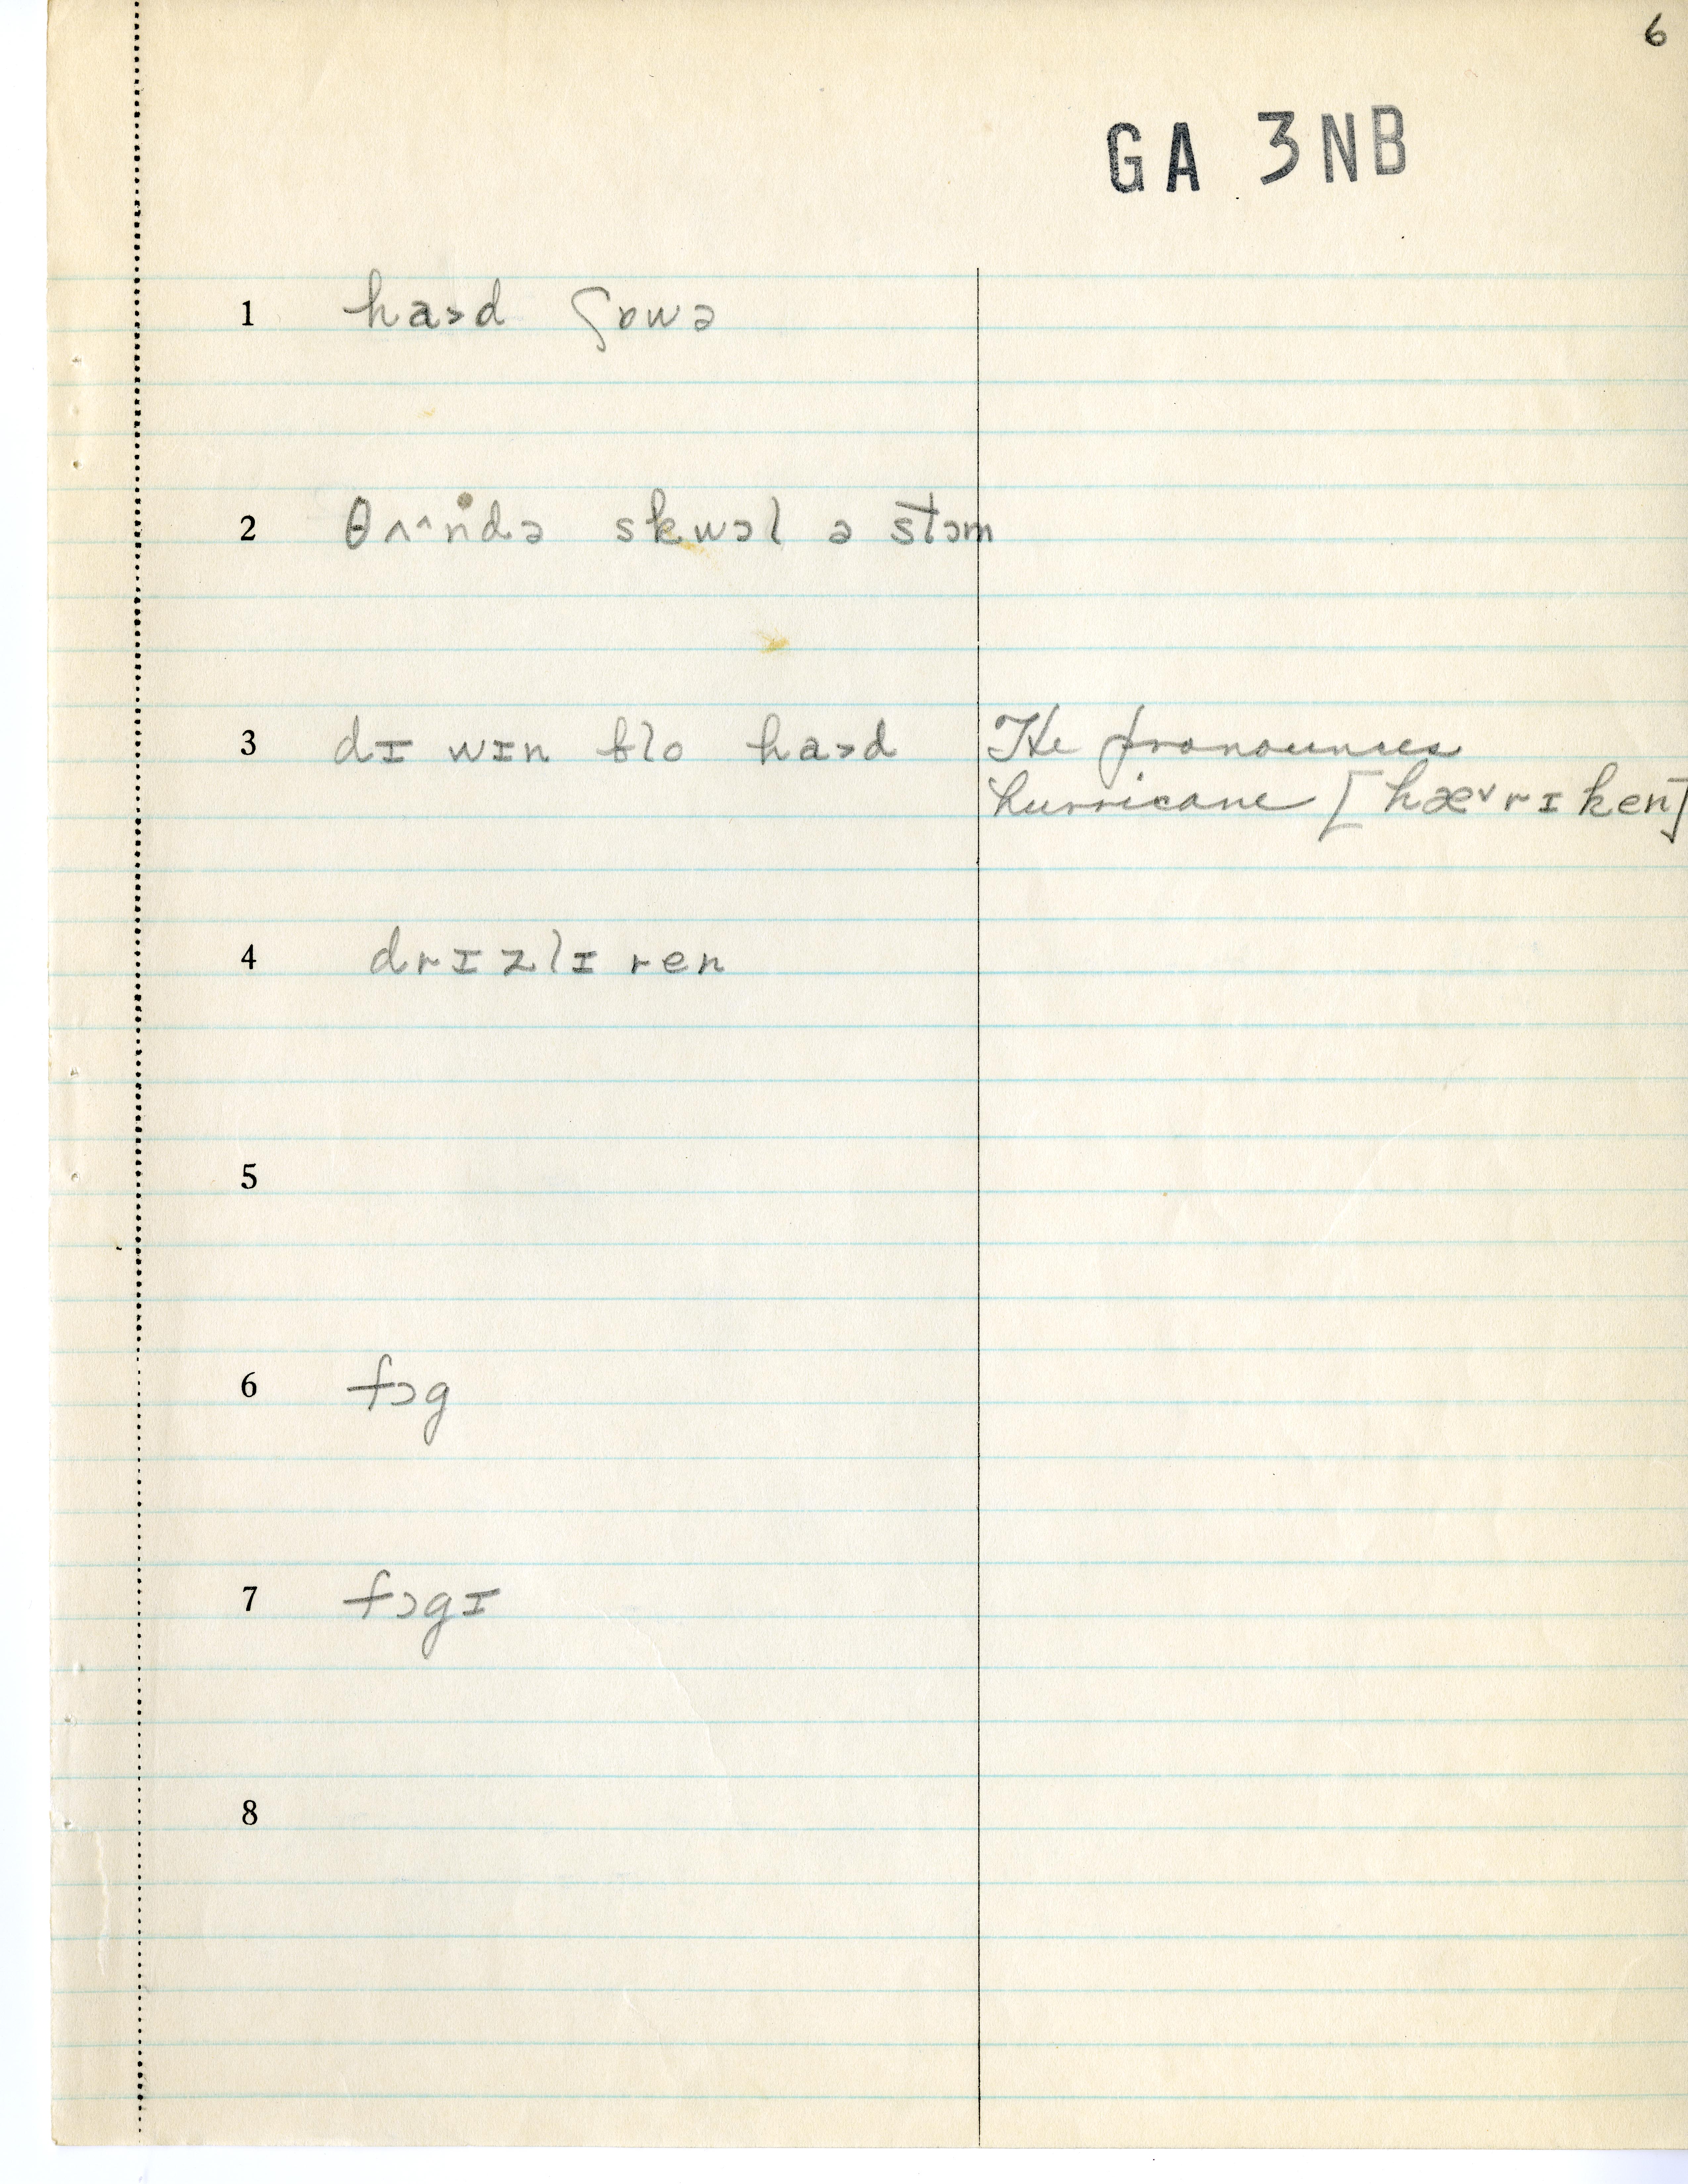 6
GA 3NB
1 ha˃d ʃɒwə
2 θʌ^ndə skwɔl ə stɔm
3 dɪ wɪn ɓlo ha˃d He pronounces
hurricane [hæ˅rɪken]
4 drɪzlɪ ren
5
6 fɔg
7 fɔgɪ
8